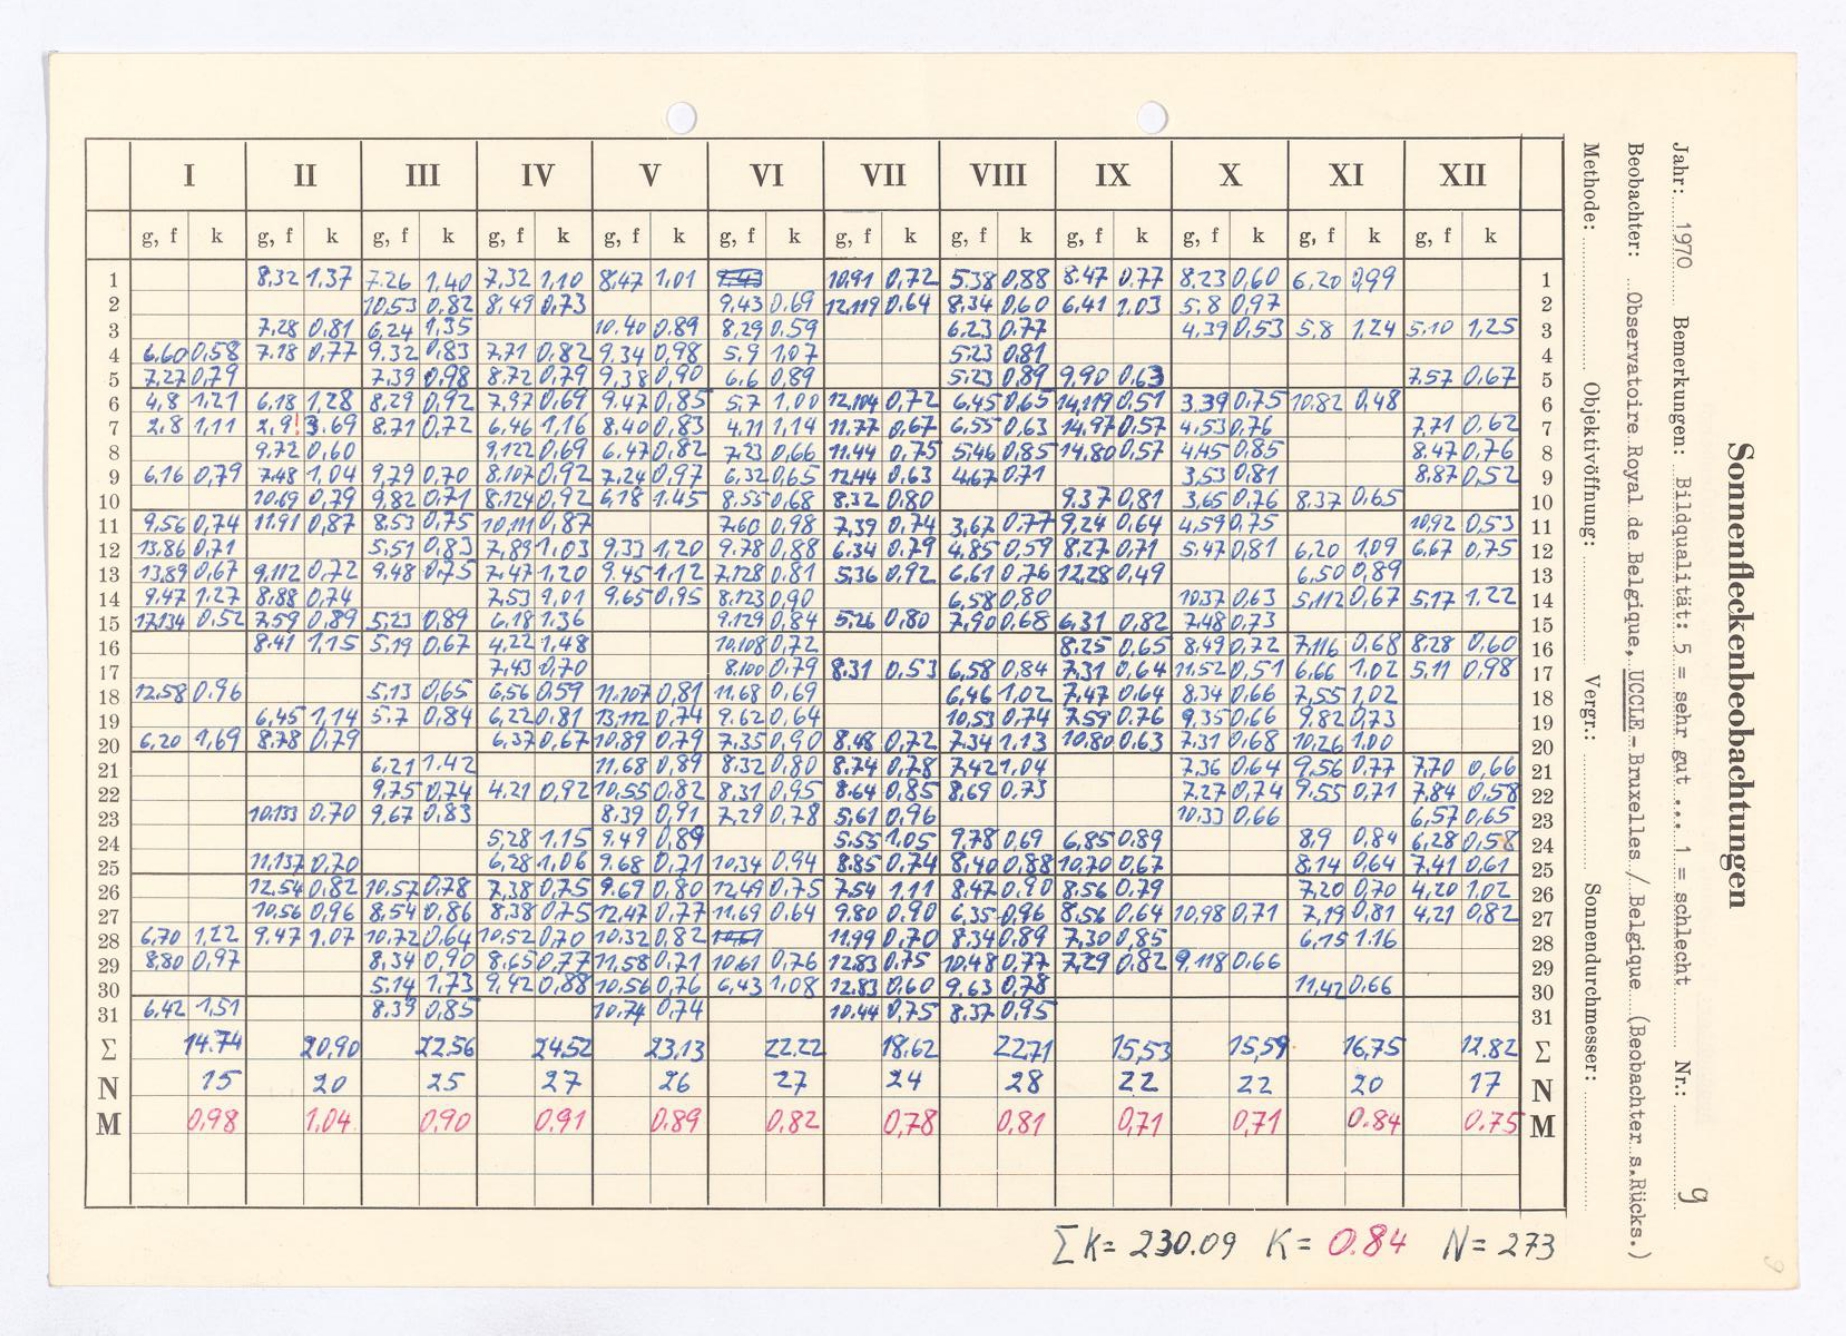 I II III IV V VI VII VIII IX X XI XII
g, f k g, f k g, f k g, f k g, f k g, f k g, f k g, f k g, f k g, f k g, f k g, f k
1 8,32 1,37 7.26 1,40 7,32 1,10 8,47 1,01 10,91 0,72 5.38 0,88 8.47 0.77 8.23 0,60 6,20 0,99 1
2 10,53 0,82 8,49 0,73 9,43 0.69 12,119 0.64 8,34 0,60 6,41 1,03 5.8 0,97 2
3 7,28 0,81 6,24 1,35 10.40 0.89 8,29 0.59 6.23 0.77 4.39 0,53 5.8 1,24 5.10 1,25 3
4 6,60 0,58 7.18 0,77 9.32 0,83 7,71 0,82 9.34 0,98 5.9 1,07 5.23 0,81 4
5 7,27 0,79 7,39 0,98 8,72 0,79 9,38 0,90 6.6 0,89 5.23 0,89 9,90 0,63 7.57 0,67 5
6 4,8 1,21 6,18 1,28 8,29 0,92 7,97 0,69 9.47 0,85 5,7 1,00 12,104 0,72 6,45 0,65 14,119 0,51 3.39 0,75 10.82 0,48 6
7 2,8 1,11 2,9! 3.69 8,71 0,72 6,46 1,16 8.40 0,83 4.11 1,14 11.77 0,67 6,55 0,63 14,97 0,57 4,53 0,76 7,71 0,62 7
8 9,72 0,60 9,122 0,69 6.47 0,82 7,23 0,66 11.44 0,75 5,46 0,85 14,80 0,57 4,45 0,85 8.47 0,76 8
9 6,16 0,79 7,48 1,04 9,79 0,70 8,107 0,92 7,24 0,97 6,32 0,65 12,44 0,63 4,67 0,71 3,53 0,81 8,87 0,52 9
10 10.69 0,79 9,82 0,71 8,124 0,92 6,18 1.45 8.55 0,68 8.32 0,80 9.37 0,81 3,65 0,76 8.37 0,65 10
11 9,56 0,74 11.91 0,87 8.53 0,75 10,111 0,87 7,60 0,98 7,39 0,74 3,67 0,77 9,24 0.64 4.59 0,75 10,92 0,53 11
12 13,86 0,71 5,51 0,83 7,89 1,03 9.33 1,20 9.78 0,88 6.34 0.79 4,85 0,59 8,27 0,71 5.47 0,81 6,20 1,09 6,67 0,75 12
13 13,89 0,67 9,112 0,72 9.48 0,75 7,47 1,20 9.45 1,12 7,128 0,81 5,36 0,92 6,61 0,76 12,28 0,49 6,50 0,89 13
14 9,47 1.27 8.88 0,74 7,53 9,01 9,65 0,95 8,123 0,90 6,58 0,80 10.37 0,63 5,112 0,67 5,17 1,22 14
15 17,134 0,52 7,59 0,89 5,23 0,89 6,18 1.36 9.129 0,84 5,26 0,80 7,90 0,68 6,31 0,82 7,48 0,73 15
16 8.41 1,15 5,19 0,67 4,22 1,48 10,108 0,72 8,25 0,65 8,49 0,72 7,116 0,68 8,28 0,60 16
17 7,43 0,70 8.100 0,79 8.31 0,53 6,58 0,84 7,31 0,64 11,52 0,51 6,66 1,02 5,11 0,98 17
18 12.58 0,96 5,13 0,65 6,56 0,59 11,107 0,81 11.68 0,69 6,46 1,02 7,47 0,64 8.34 0,66 7,55 1,02 18
19 6,45 1,14 5.7 0,84 6,22 0,81 13,112 0,74 9.62 0,64 10,53 0,74 7.59 0.76 9.35 0,66 9.82 0,73 19
20 6,20 1,69 8.78 0,79 6,37 0,67 10,89 0,79 7,35 0,90 8,48 0,72 7.34 1.13 10,80 0.63 7,31 0,68 10,26 1,00 20
21 6,21 1.42 11,68 0,89 8.32 0,80 8.74 0,78 7,42 1,04 7,36 0,64 9,56 0.77 7,70 0,66 21
22 9,75 0,74 4.21 0,92 10,55 0.82 8,31 0,95 8.64 0,85 8,69 0.73 7.27 0,74 9.55 0,71 7,84 0,58 22
23 10,133 0,70 9,67 0,83 8,39 0,91 7,29 0,78 5,61 0,96 10.33 0,66 6,57 0,65 23
24 5,28 1,15 9,49 0,89 5.55 1,05 9.78 0,69 6,85 0.89 8.9 0,84 6,28 0,58 24
25 11,137 0,70 6,28 1,06 9.68 0,71 10,34 0,94 8.85 0,74 8,40 0,88 10,70 0,67 8,14 0,64 7,41 0,61 25
26 12,54 0,82 10,57 0,78 7,38 0,75 9.69 0,80 12,49 0,75 7.54 1,11 8.47 0.90 8.56 0,79 7,20 0,70 4,20 1,02 26
27 10,56 0,96 8,54 0,86 8,38 0,75 12,47 0,77 11,69 0,64 9.80 0.90 6,35 0,96 8,56 0,64 10,98 0,71 7,19 0,81 4,21 0,82 27
28 6,70 1,22 9.47 1,07 10,72 0,64 10.52 0,70 10,32 0,82 11,99 0,70 8.34 0,89 7,30 0,85 6,15 1.16 28
29 8,80 0,97 8,34 0,90 8,65 0,77 11,58 0,71 10,61 0,76 12.83 0.75 10,48 0,77 7,29 0,82 9,118 0,66 29
30 5,14 1,73 9,42 0,88 10,56 0,76 6,43 1,08 12.83 0,60 9.63 0,78 11,42 0,66 30
31 6,42 1,51 8.39 0,85 10,74 0,74 10.44 0,75 8.37 0,95 31
Σ 14.74 20,90 22.56 24,52 23,13 22.22 18.62 22,71 15,53 15,59 16,75 12.82 Σ
N 15 20 25 27 26 27 24 28 22 22 20 17 N
M 0,98 1,04 0,90 0,91 0.89 0,82 0,78 0,81 0,71 0,71 0.84 0.75 M
Σ K = 230.09 K = 0.84 N = 273
Sonnenfleckenbeobachtungen
Jahr: 1970 Bemerkungen: Bildqualität: 5 = sehr gut ... 1 = schlecht Nr.: 9
Beobachter: Observatoire Royal de Belgique, UCCLE - Bruxelles / Belgique (Beobachter s.Rücks.)
Methode: Objektivöffnung: Vergr.: Sonnendurchmesser: